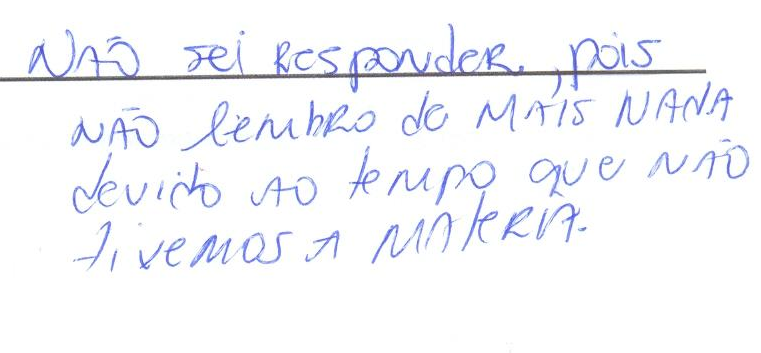 NÃO sei Responder, pois
NÃO lembRO de MAIS NADA
devido AO tempo que NÃO
tivemos A MATERIA.